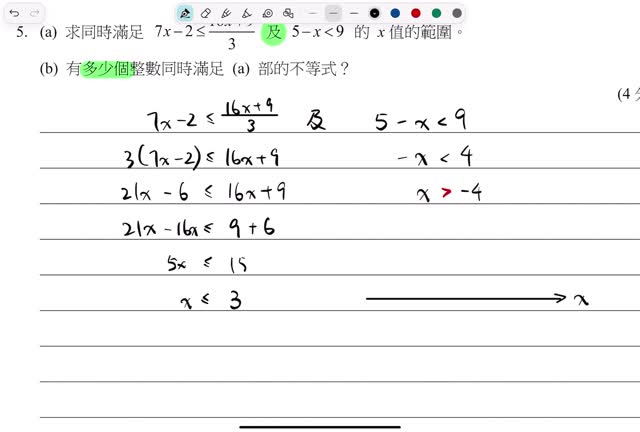 5. (a) 求同時滿足 7x−2≤(16x+9)/3 及 5−x<9 的 x 值的範圍。
(b) 有多少個整數同時滿足 (a) 部的不等式？
(4
7x−2 ≤ (16x+9)/3 及 5−x < 9
3(7x−2) ≤ 16x+9 −x < 4
21x−6 ≤ 16x+9 x > −4
21x−16x ≤ 9+6
5x ≤ 15
x ≤ 3 x